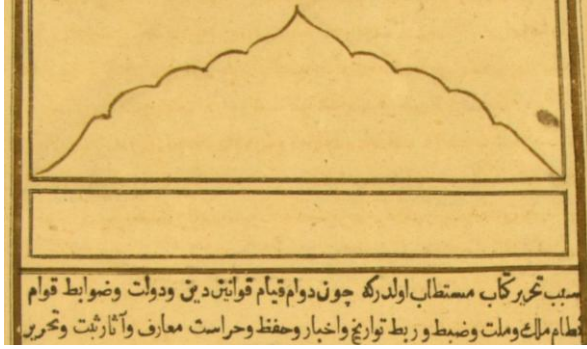 سبب تحریر کتاب مستطاب اولدرکه چون دوام قیام قوانین دین ودولت وضوابط قوام
نظام ملك وملت وضبط و ربط تواریخ واخبار وحفظ وحراست معارف وآثار ثبت وتحریر